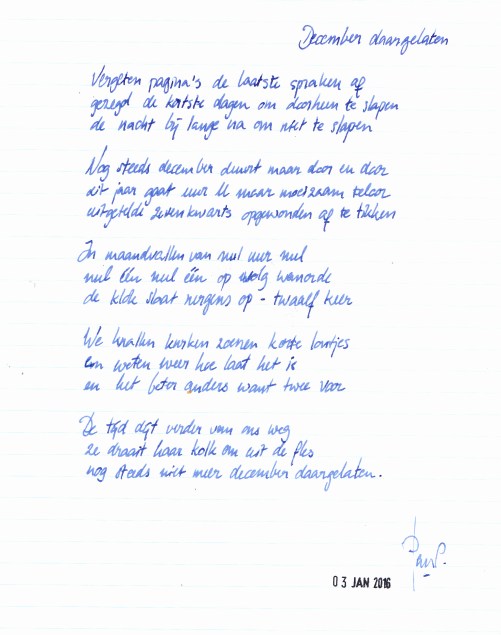 December daargelaten
Vergeten pagina's de laatste spraken af
gezegd de kortste dagen om doorheen te slapen
de nacht bij lange na om niet te slapen
Nog steeds december duurt maar door en door
dit jaar gaat uur U maar moeizaam teloor
uitgetelde zevenkwarts opgewonden af te tikken
In maandvallen van nul uur nul
nul één nul één op wanorde
de klok slaat nergens op - twaalf keer
We knallen kurken zoenen korte lontjes
en weten weer hoe laat het is
en het beter anders want twee voor
De tijd dijt verder van ons weg
ze draait haar kolk om uit de fles
nog steeds niet meer december daargelaten.
03 JAN 2016